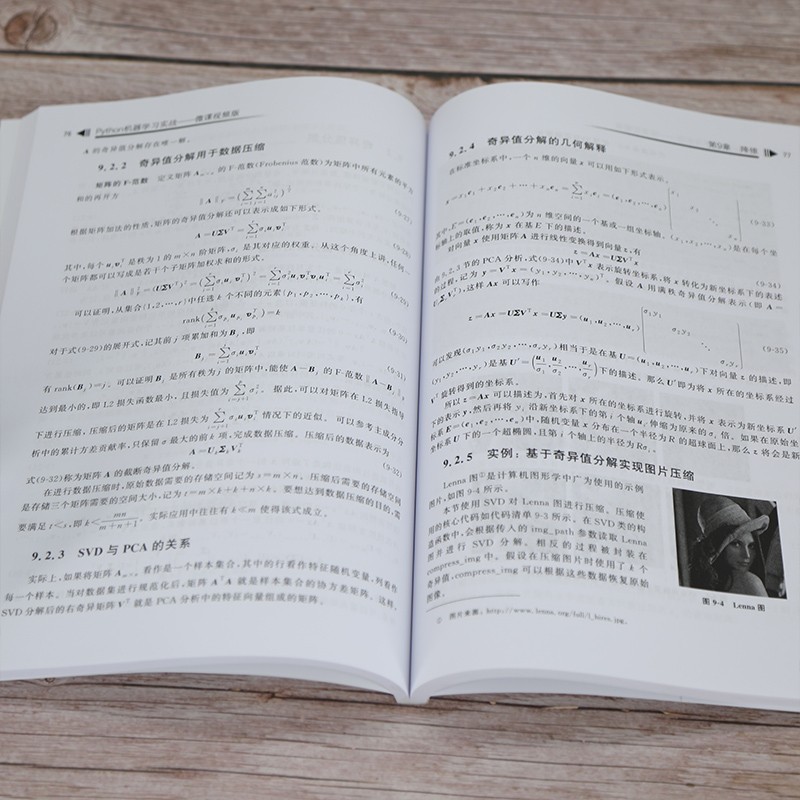 76 Python机器学习实战——微课视频版
A 的奇异值分解存在唯一解。
9.2.2 奇异值分解用于数据压缩
矩阵的 F-范数 定义矩阵 Aₘ×ₙ 的 F-范数(Frobenius 范数)为矩阵中所有元素的平方
和的再开方
(9-27)
根据矩阵加法的性质,矩阵的奇异值分解还可以表示成如下形式。
A = UΣVᵀ = Σσᵢuᵢvᵢᵀ (9-28)
其中,每个 uᵢvᵢᵀ 是秩为 1 的 m×n 阶矩阵,σᵢ 是其对应的权重。从这个角度上讲,任何一
个矩阵都可以写成是若干个子矩阵加权求和的形式。
(9-29)
可以证明,从集合{1,2,…,r}中任选 k 个不同的元素{p₁,p₂,…,pₖ},有
(9-30)
对于式(9-29)的展开式,记其前 j 项累加和为 Bⱼ,即
(9-31)
有 rank(Bⱼ)=j。可以证明 Bⱼ 是所有秩为 j 的矩阵中,能使 A−Bⱼ 的 F-范数
达到最小的,即 L2 损失函数最小,且损失值为 。据此,可以对矩阵在 L2 损失指导
下进行压缩,压缩后的矩阵是在 L2 损失为 情况下的近似。可以参考主成分分
析中的累计方差贡献率,只保留 σ 最大的前 k 项,完成数据压缩。压缩后的数据表示为
(9-32)
式(9-32)称为矩阵 A 的截断奇异值分解。
在进行数据压缩时,原始数据需要的存储空间记为 s=m×n。压缩后需要的存储空间
是存储三个矩阵需要的空间大小,记为 t=m×k+k+n×k。要想达到数据压缩的目的,需
要满足 t<s,即 k<mn/(m+n+1)。实际应用中往往有 k≪m 使得该式成立。
9.2.3 SVD 与 PCA 的关系
实际上,如果将矩阵 Aₘ×ₙ 看作是一个样本集合,其中的行看作特征随机变量,列看作
每一个样本。当对数据集进行规范化后,矩阵 AᵀA 就是样本集合的协方差矩阵。这样,
SVD 分解后的右奇异矩阵 Vᵀ 就是 PCA 分析中的特征向量组成的矩阵。
第9章 77
9.2.4 奇异值分解的几何解释
在标准坐标系中,一个 n 维的向量 x 可以用如下形式表示。
(9-33)
其中,E=(e₁,e₂,…,eₙ)为 n 维空间的一个基或一组坐标轴。 是在每个坐
标轴上的取值,称为 x 在基 E 下的描述。
对向量 x 使用矩阵 A 进行线性变换得到向量 z,有
z=Ax=UΣVᵀx (9-34)
由 9.2.3 节的 PCA 分析,式(9-34)中 Vᵀx 表示旋转坐标系,将 x 转化为新坐标系下的表述
的过程,记为 y=Vᵀx=(y₁,y₂,…,yᵣ)ᵀ。假设 A 用满秩奇异值分解表示(即 A=
),这样 Ax 可以写作
z=Ax=UΣVᵀx=UΣy=(u₁,u₂,…,uᵣ) (9-35)
可以发现(σ₁y₁,σ₂y₂,…,σᵣyᵣ)相当于是在基 U=(u₁,u₂,…,uᵣ)下对向量 z 的描述,即
(y₁,y₂,…,yᵣ)是基 U′= 下的描述。那么 U′即为将 x 所在的坐标系经过
Vᵀ 旋转得到的坐标系。
所以 z=Ax 可以描述为,首先对 x 所在的坐标系进行旋转,并将 x 表示为新坐标系 U′
下的表示 y,然后再将 yᵢ 沿新坐标系下的第 i 个轴 uᵢ 伸缩为原来的 σᵢ 倍。如果在原始坐
标系 E=(e₁,e₂,…,eₙ)中,随机变量 x 分布在一个半径为 R 的超球面上,那么 z 将会是新
坐标系 U 下的一个超椭圆,且第 i 个轴上的半径为 Rσᵢ。
9.2.5 实例:基于奇异值分解实现图片压缩
Lenna 图①是计算机图形学中广为使用的示例
图片,如图 9-4 所示。
本节使用 SVD 对 Lenna 图进行压缩。压缩使
用的核心代码如代码清单 9-3 所示。在 SVD 类的构
造函数中,会根据传入的 img_path 参数读取 Lenna
图并进行 SVD 分解。相反的过程被封装在
compress_img 中。假设在压缩图片时使用了 k 个
奇异值,compress_img 可以根据这些数据恢复原始
图像。
图 9-4 Lenna 图
① 图片来源:http://www.lenna.org/full/l_hires.jpg。